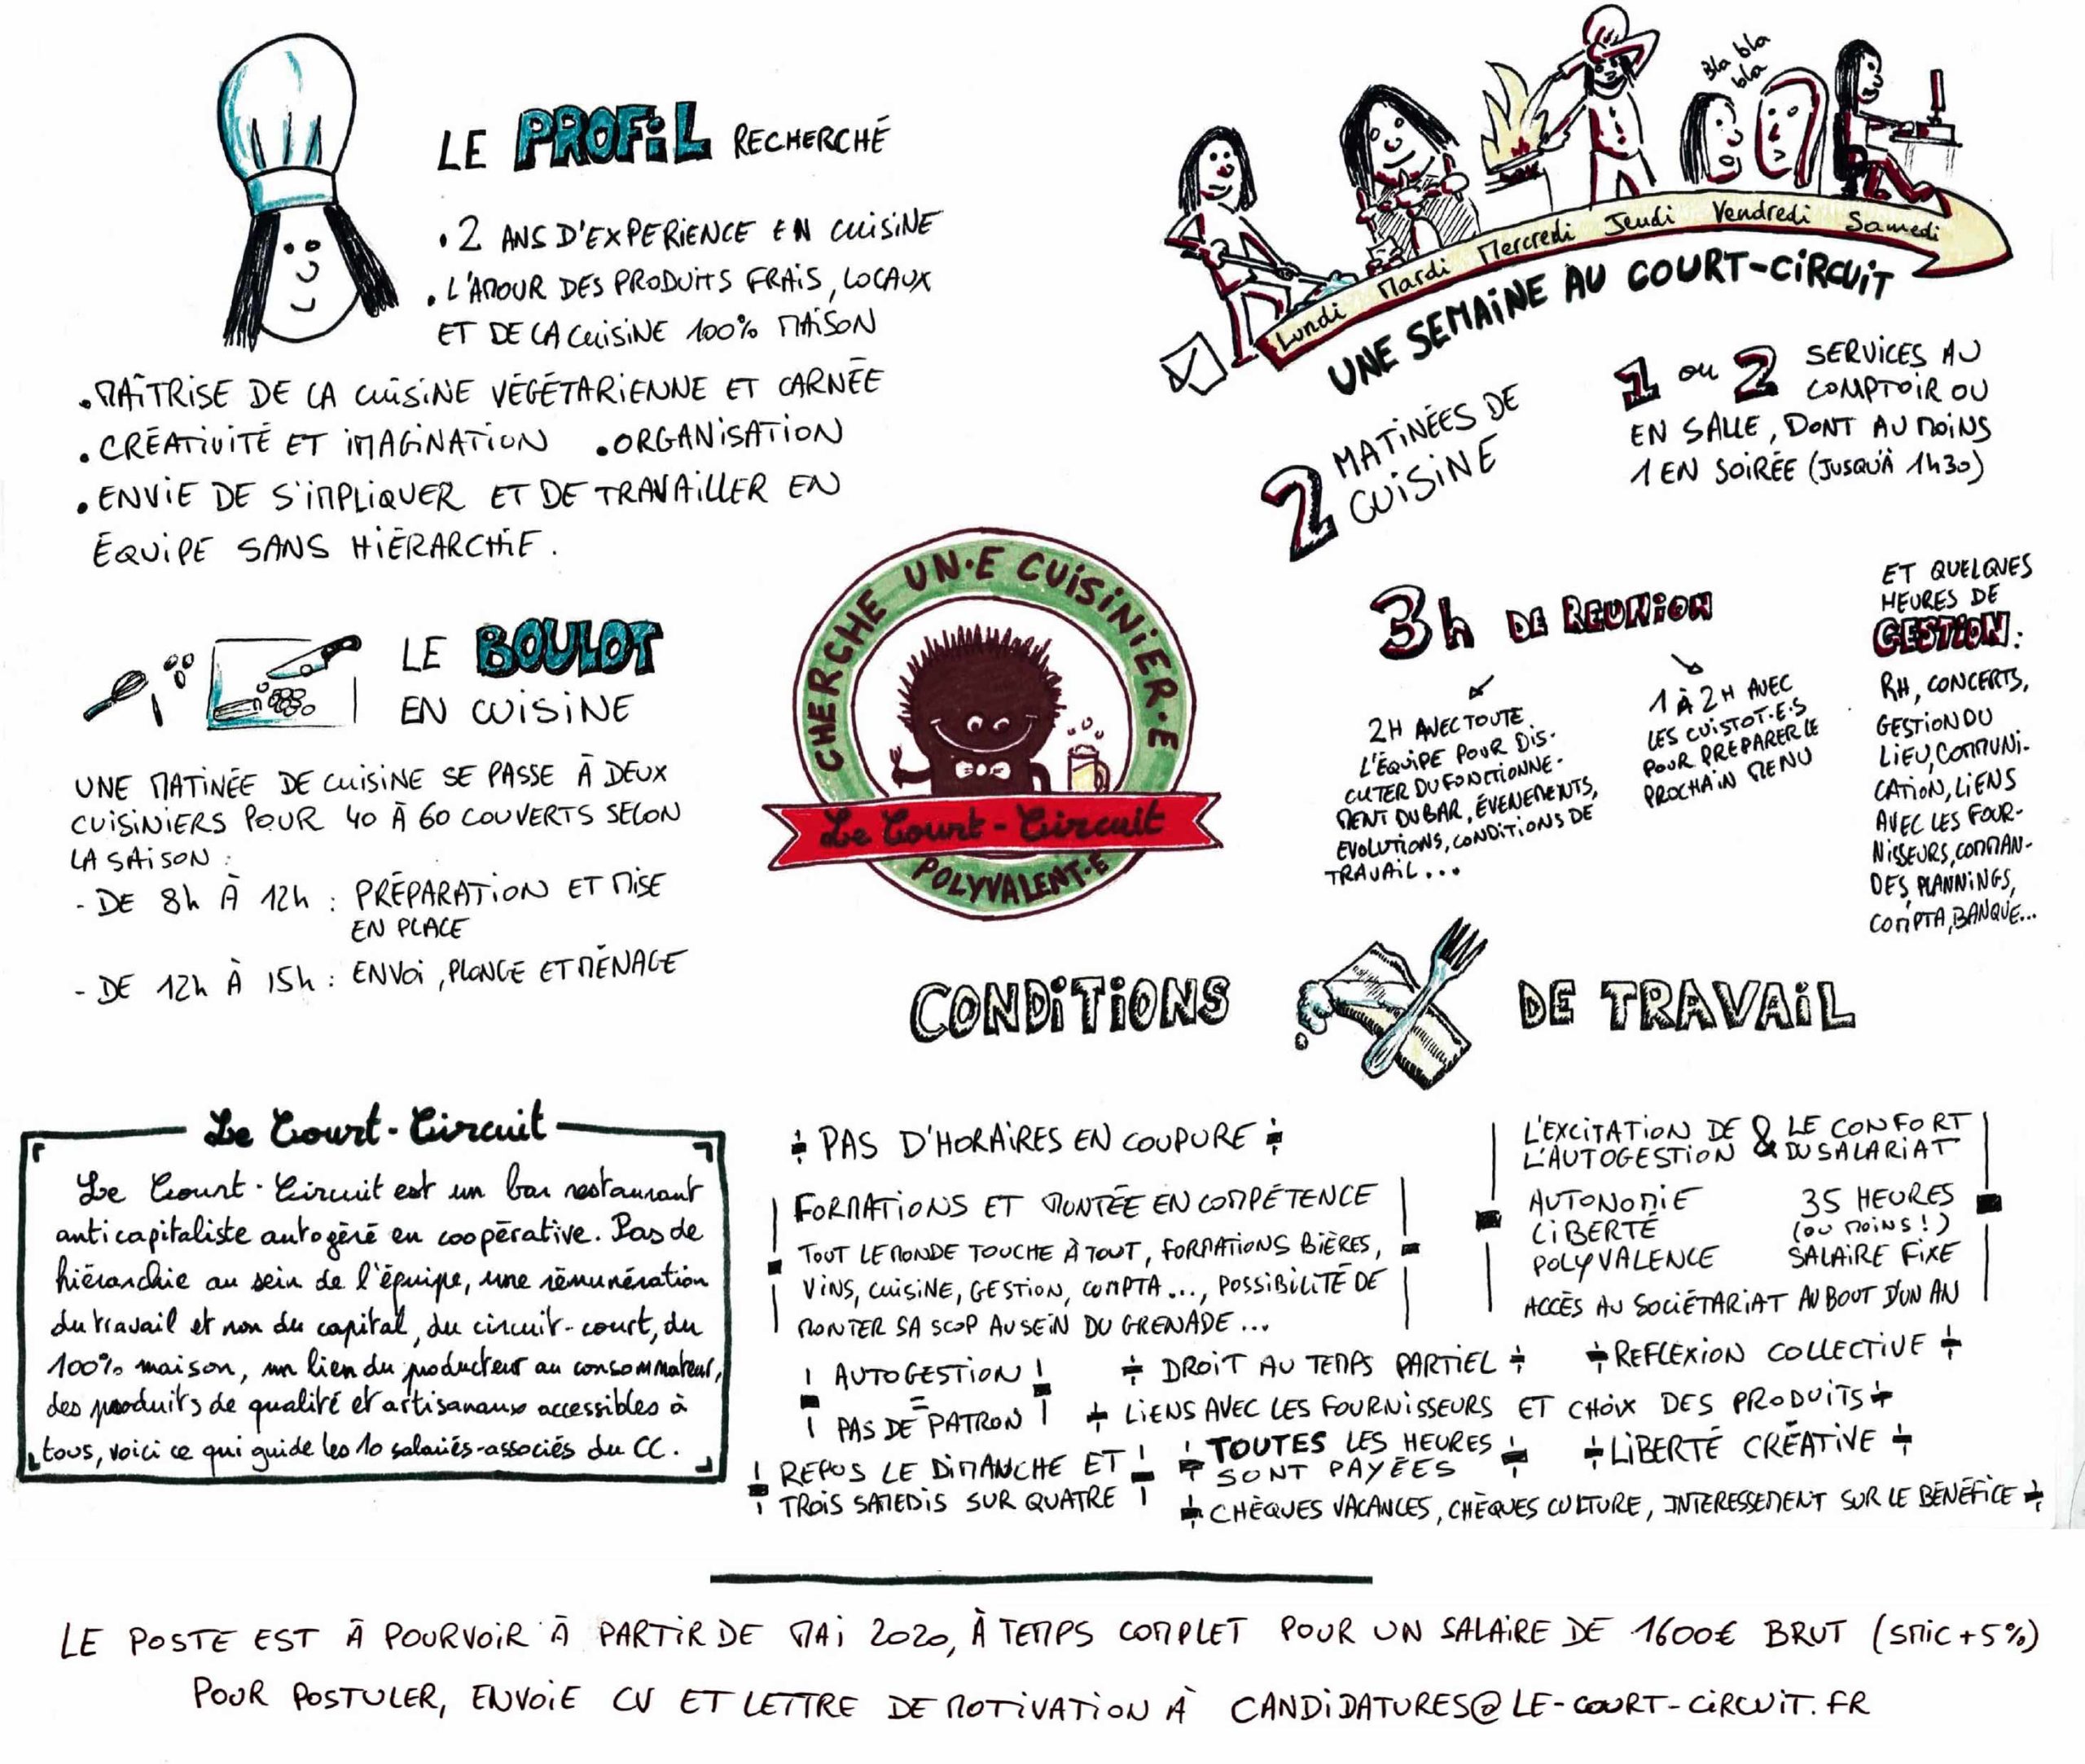 LE PROFIL RECHERCHÉ
. 2 ANS D'EXPERIENCE EN CUISINE
. L'AMOUR DES PRODUITS FRAIS, LOCAUX
ET DE LA CUISINE 100% MAISON
. MAÎTRISE DE LA CUISINE VÉGÉTARIENNE ET CARNÉE
. CRÉATIVITÉ ET IMAGINATION . ORGANISATION
. ENVIE DE S'IMPLIQUER ET DE TRAVAILLER EN
ÉQUIPE SANS HIÉRARCHIE.
LE BOULOT
EN CUISINE
UNE MATINÉE DE CUISINE SE PASSE À DEUX
CUISINIERS POUR 40 À 60 COUVERTS SELON
LA SAISON :
- DE 8h À 12h : PRÉPARATION ET MISE
EN PLACE
- DE 12h À 15h : ENVOI, PLONGE ET MÉNAGE
Bla bla
bla
Lundi Mardi Mercredi Jeudi Vendredi Samedi
UNE SEMAINE AU COURT-CIRCUIT
2 MATINÉES DE
CUISINE
1 ou 2 SERVICES AU
COMPTOIR OU
EN SALLE, DONT AU MOINS
1 EN SOIRÉE (JUSQU'À 1h30)
3h DE REUNION
2H AVEC TOUTE
L'ÉQUIPE POUR DIS-
CUTER DU FONCTIONNE-
MENT DU BAR, ÉVENEMENTS,
EVOLUTIONS, CONDITIONS DE
TRAVAIL...
1 À 2H AVEC
LES CUISTOT·E·S
POUR PREPARER LE
PROCHAIN MENU
ET QUELQUES
HEURES DE
GESTION :
RH, CONCERTS,
GESTION DU
LIEU, COMMUNI-
CATION, LIENS
AVEC LES FOUR-
NISSEURS, COMMAN-
DES, PLANNINGS,
COMPTA, BANQUE...
CHERCHE UN·E CUISINIER·E
Le Court-Circuit
POLYVALENT·E
CONDITIONS DE TRAVAIL
Le Court-Circuit
Le Court-Circuit est un bar restaurant
anticapitaliste autogéré en coopérative. Pas de
hiérarchie au sein de l'équipe, une rémunération
du travail et non du capital, du circuit-court, du
100% maison, un lien du producteur au consommateur,
des produits de qualité et artisanaux accessibles à
tous, voici ce qui guide les 10 salariés-associés du CC.
PAS D'HORAIRES EN COUPURE
FORMATIONS ET MONTÉE EN COMPÉTENCE
TOUT LE MONDE TOUCHE À TOUT, FORMATIONS BIÈRES,
VINS, CUISINE, GESTION, COMPTA..., POSSIBILITÉ DE
MONTER SA SCOP AU SEIN DU GRENADE...
L'EXCITATION DE & LE CONFORT
L'AUTOGESTION DU SALARIAT
AUTONOMIE 35 HEURES
LIBERTÉ (OU MOINS !)
POLYVALENCE SALAIRE FIXE
ACCÈS AU SOCIÉTARIAT AU BOUT D'UN AN
AUTOGESTION
=
PAS DE PATRON
+ DROIT AU TEMPS PARTIEL +
+ REFLEXION COLLECTIVE +
+ LIENS AVEC LES FOURNISSEURS ET CHOIX DES PRODUITS +
REPOS LE DIMANCHE ET
TROIS SAMEDIS SUR QUATRE
+ TOUTES LES HEURES +
SONT PAYÉES
+ LIBERTÉ CRÉATIVE +
+ CHÈQUES VACANCES, CHÈQUES CULTURE, INTERESSEMENT SUR LE BÉNÉFICE +
LE POSTE EST À POURVOIR À PARTIR DE MAI 2020, À TEMPS COMPLET POUR UN SALAIRE DE 1600€ BRUT (SMIC+5%)
POUR POSTULER, ENVOIE CV ET LETTRE DE MOTIVATION À CANDIDATURES@LE-COURT-CIRCUIT.FR